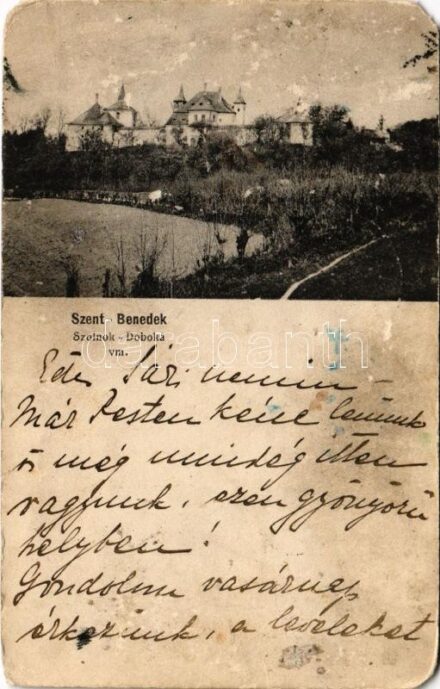 Szent-Benedek
Szolnok-Doboka
vm.
darabanth
Édes Sári nénim –
Már Pesten kéne lennünk
s még mindég itten
vagyunk, ezen gyönyörű
helyben!
Gondolom vasárnap
érkezünk, a leveleket